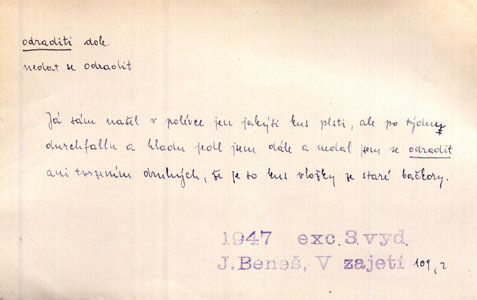 odraditi dok.
nedat se odradit
Já sám našel v polévce jen jakýsi kus plsti, ale po týdnu
durchfallu a hladu jedl jsem dále a nedal jsem se odradit
ani tvrzením druhých, že je to kus vložky ze staré bačkory.
1947 exc. 3. vyd.
J. Beneš, V zajetí 109, 2